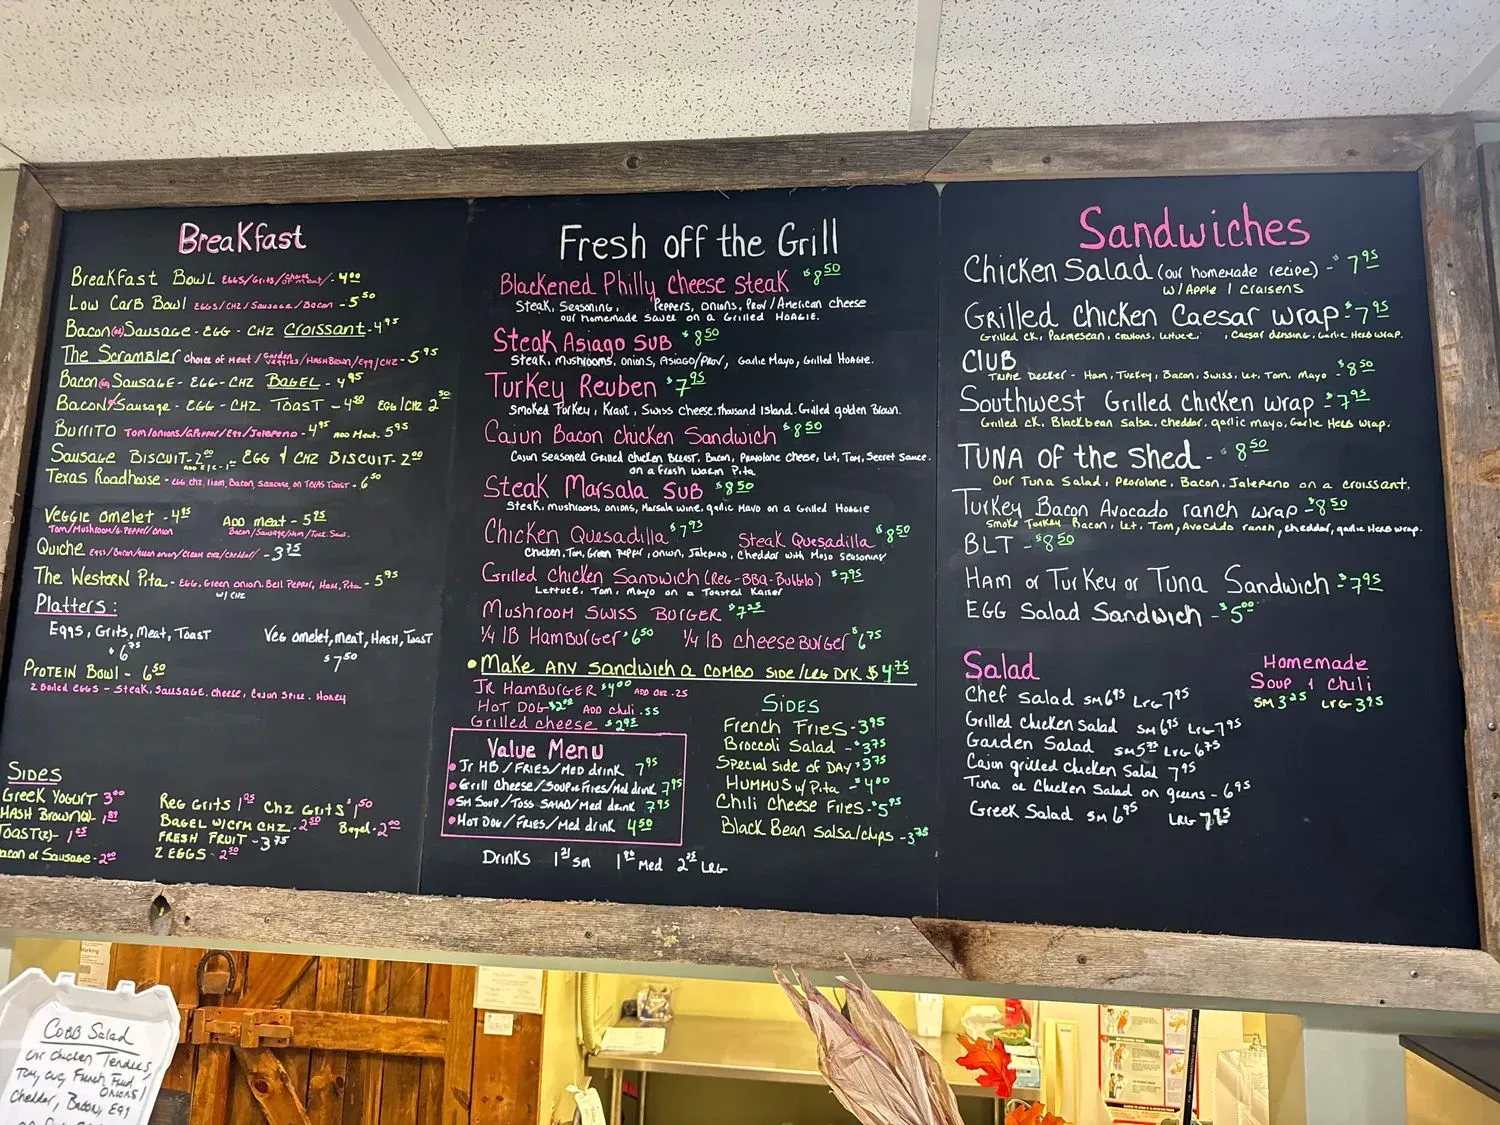 Breakfast
Breakfast Bowl Eggs/Grits/choice of meat/- 4.00
Low Carb Bowl Eggs/CHZ/Sausage/Bacon - 5.50
Bacon (or) Sausage - Egg - CHZ Croissant - 4.95
The Scrambler choice of Meat/Garden veggies/Hash Brown/Egg/CHZ - 5.95
Bacon (or) Sausage - Egg - CHZ Bagel - 4.95
Bacon/Sausage - Egg - CHZ Toast - 4.50 Egg/CHZ 2.50
Burrito Tom/onions/G.Pepper/Egg/Jalapeno - 4.95 ADD Meat. 5.95
Sausage Biscuit - 2.00 Egg & CHZ Biscuit - 2.00
Texas Roadhouse - Egg, chz, Ham, Bacon, Sausage, on Texas Toast - 6.50
Veggie omelet - 4.95 ADD meat - 5.95
Tom/Mushroom/G.Pepper/onion Bacon/Sausage/Ham/Turk. Saus.
Quiche - 3.75
The Western Pita - Egg, Green onion, Bell Pepper, Ham, Pita - 5.95
w/ CHZ
Platters:
Eggs, Grits, Meat, Toast
$6.75
Veg omelet, meat, Hash, Toast
$7.50
Protein Bowl - 6.50
2 Boiled Eggs - Steak, Sausage, cheese, Cajun Spice, Honey
Sides
Greek Yogurt 3.00
Hash Brown(2) - 1.89
Toast(2) - 1.25
Bacon or Sausage - 2.00
Reg Grits 1.25 CHZ Grits 1.50
Bagel w/crm CHZ - 2.50 Bagel - 2.00
Fresh Fruit - 3.75
2 Eggs - 2.50
Fresh off the Grill
Blackened Philly Cheese Steak $8.50
Steak, Seasoning, Peppers, onions, Prov/American cheese
our homemade sauce on a Grilled Hoagie.
Steak Asiago Sub $8.50
Steak, mushrooms, onions, Asiago/Prov, Garlic Mayo, Grilled Hoagie.
Turkey Reuben $7.95
Smoked Turkey, Kraut, Swiss cheese. thousand Island. Grilled golden Brown.
Cajun Bacon Chicken Sandwich $8.50
Cajun Seasoned Grilled chicken Breast, Bacon, Provolone Cheese, Let, Tom, Secret Sauce.
on a Fresh warm Pita
Steak Marsala Sub $8.50
Steak, mushrooms, onions, Marsala wine, garlic Mayo on a Grilled Hoagie
Chicken Quesadilla $7.95 Steak Quesadilla $8.50
Chicken, Tom, Green Pepper, onion, Jalapeno, Cheddar with Mojo Seasoning
Grilled Chicken Sandwich (Reg - BBQ - Buffalo) $7.95
Lettuce, Tom, Mayo on a Toasted Kaiser
Mushroom Swiss Burger $7.25
1/4 lb Hamburger $6.50 1/4 lb Cheeseburger $6.75
• Make any sandwich a combo side/LRG Drk $4.75
Jr Hamburger $4.00 ADD CHZ .25
Hot Dog $2.00 ADD Chili .55
Grilled cheese $2.95
Value Menu
• Jr HB/Fries/Med drink 7.95
• Grill Cheese/Soup or Fries/Med drink 7.95
• Sm Soup/Toss Salad/Med drink 7.95
• Hot Dog/Fries/Med drink 4.50
Sides
French Fries - 3.95
Broccoli Salad - $3.75
Special side of Day $3.75
Hummus w/ Pita - $4.00
Chili Cheese Fries - $5.95
Black Bean Salsa/chips - 3.75
Drinks 1.71 sm 1.96 Med LRG
Sandwiches
Chicken Salad (our homemade recipe) - $7.95
w/ Apple / Craisens
Grilled Chicken Caesar Wrap - $7.95
Grilled ck, Parmesean, croutons, Lettuce, Caesar dressing, Garlic Herb wrap.
Club - $8.50
Triple Decker - Ham, Turkey, Bacon, Swiss, Let, Tom, Mayo
Southwest Grilled Chicken Wrap - $7.95
Grilled ck, Black bean Salsa, cheddar, garlic mayo, Garlic Herb wrap.
Tuna of the Shed - $8.50
Our Tuna Salad, Pepperolone, Bacon, Jalepeno on a croissant.
Turkey Bacon Avocado ranch wrap - $8.50
Smoke Turkey Bacon, Let, Tom, Avocado ranch, cheddar, garlic Herb wrap.
BLT - $8.50
Ham or Turkey or Tuna Sandwich - $7.95
Egg Salad Sandwich - $5.00
Salad
Chef Salad sm 6.95 Lrg 7.95
Grilled chicken Salad sm 6.95 Lrg 7.95
Garden Salad Lrg 6.75
Cajun grilled Chicken Salad 7.95
Tuna or Chicken Salad on greens - 6.95
Greek Salad sm 6.95 LRG 7.95
Homemade
Soup & Chili
sm 3.25 Lrg 3.95
Cobb Salad
chicken Tenders,
Tom, cuc, French Fried
onions/
Cheddar, Bacon, Egg